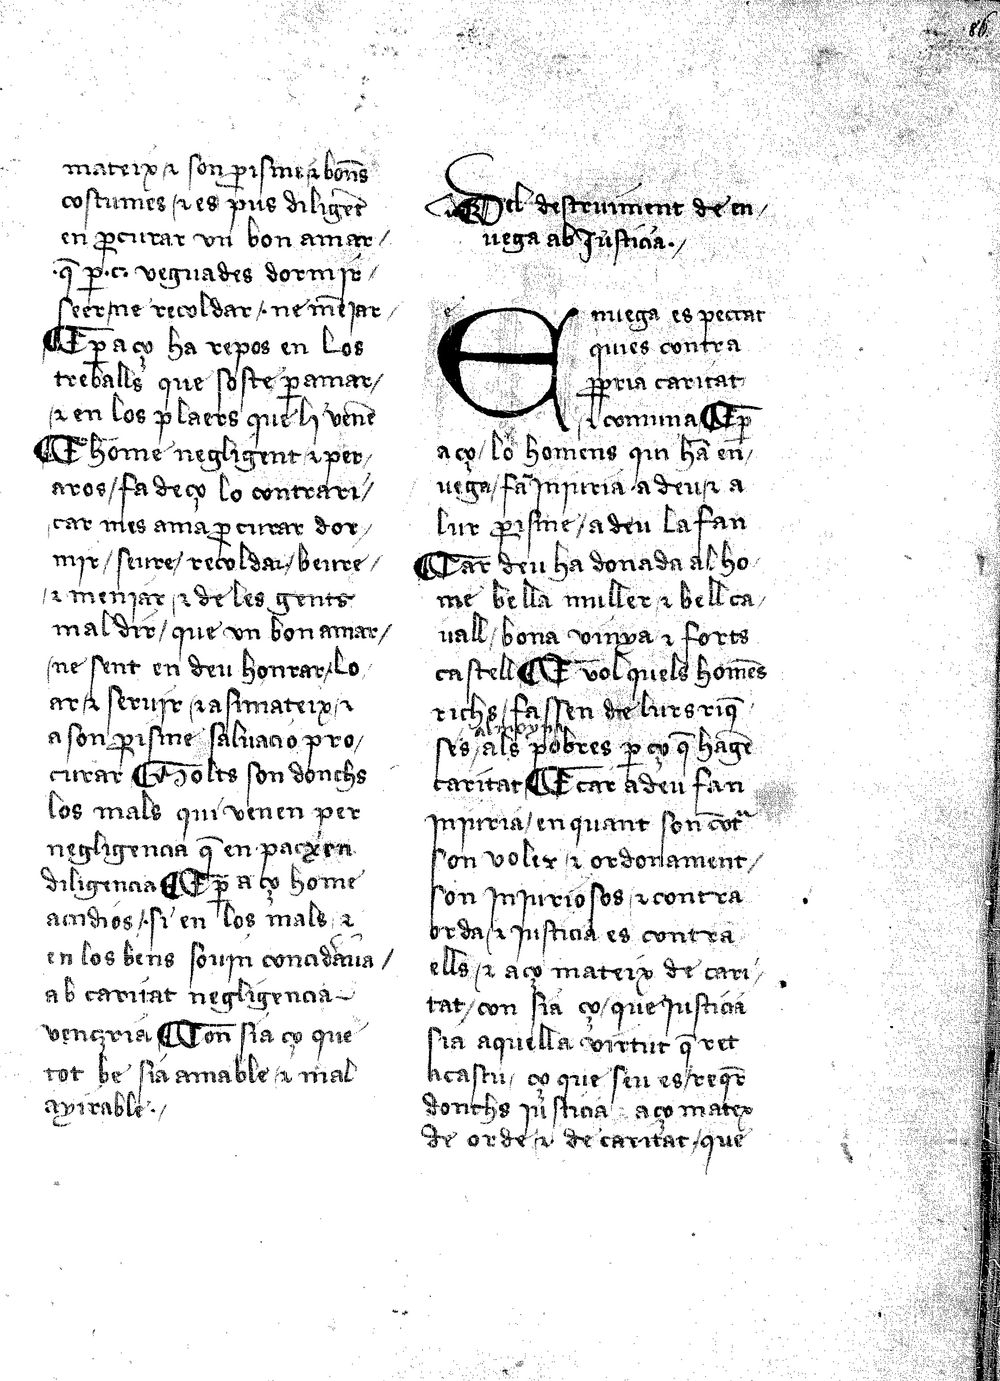 86
mateix / ⁊ son ꝑisme / ⁊ bon̄s
costumes / ⁊ es pus diligēt
en ꝓcurar vn bon amar /
·q̄ ꝑ·c· veguades dormir /
seer / ne recoldar / ne mēiar /
¶ E ꝑ aço ha repos en los
treballs que soste ꝑ amar /
⁊ en los plaers que li venē
¶ E home negligent ⁊ per /
aros / fa de ço lo contrari /
car mes ama ꝓcurar dor /
mir / seure / recoldar / beure /
⁊ meniar / ⁊ de les gents
mal dir / que vn bon amar /
ne sent en deu honrar / lo
ar / ⁊ seruir / ⁊ asimateix / ⁊
a son ꝑisme saluacio pro /
curar ¶ Molts son donchs
los mals qui venen per
negligencia q̄ en pacxen
diligencia ¶ E ꝑ aço home
accidios / si en los mals / ⁊
en los bens souin concidaua /
ab caritat negligencia
vençria ¶ Con sia ço que
tot be sia amable / ⁊ mal
ayirable · /
Del destruiment de en /
uega ab Justicia · /
Enuega es peccat
quies contra
ꝓpria caritat
⁊ comuna ¶ E ꝑ
aço / lo homens qui hā en /
uega / fā injuria a deu / ⁊ a
lur ꝑisme / a deu la fan
¶ Car deu ha donada al ho /
me bella muller ⁊ bell ca /
uall / bona vinya ⁊ forts
castell ¶ E vol quels homēs
richs / fassen de lurs riq̄
ses almoyna als pobres ꝑ ço q̄ hagē
caritat ¶ E car a deu fan
injuria / en quant son cōtᵃ
son voler ⁊ ordonament /
son injuriosos / ⁊ contra
orda / ⁊ justicia es contra
ells / ⁊ aço mateix de cari /
tat / con sia ço / que justicia
sia aquella virtut q̄ ret
acascu / ço que seu es / reqr̄
donchs justicia aço matex
de orde / ⁊ de caritat / que